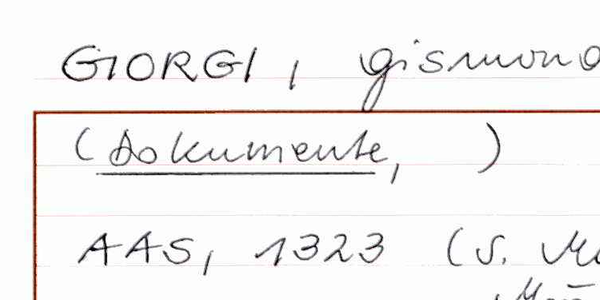 GIORGI, gismond
(Dokumente, )
AAS, 1323 (s.